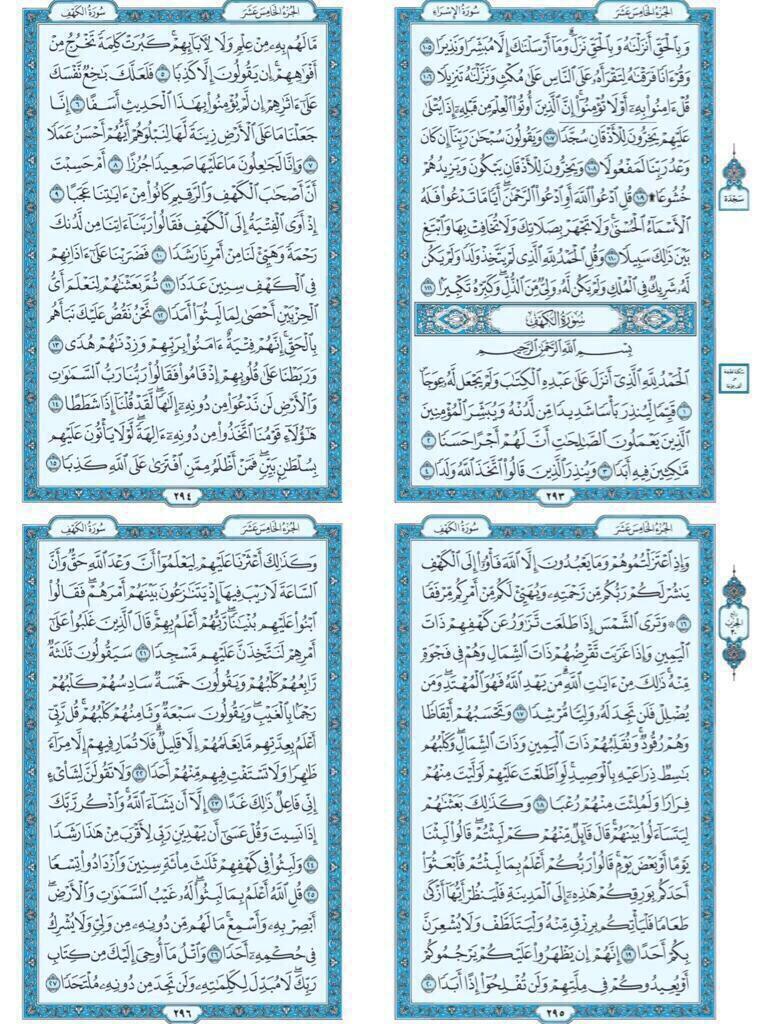 الجزء الخامس عشر
سورة الإسراء
وَبِالْحَقِّ أَنزَلْنَٰهُ وَبِالْحَقِّ نَزَلَ ۗ وَمَا أَرْسَلْنَٰكَ إِلَّا مُبَشِّرًا وَنَذِيرًا ١٠٥
وَقُرْءَانًا فَرَقْنَٰهُ لِتَقْرَأَهُۥ عَلَى النَّاسِ عَلَىٰ مُكْثٍ وَنَزَّلْنَٰهُ تَنزِيلًا ١٠٦
قُلْ ءَامِنُوا بِهِۦٓ أَوْ لَا تُؤْمِنُوٓا ۚ إِنَّ الَّذِينَ أُوتُوا الْعِلْمَ مِن قَبْلِهِۦٓ إِذَا يُتْلَىٰ
عَلَيْهِمْ يَخِرُّونَ لِلْأَذْقَانِ سُجَّدًا ١٠٧ وَيَقُولُونَ سُبْحَٰنَ رَبِّنَآ إِن كَانَ
وَعْدُ رَبِّنَا لَمَفْعُولًا ١٠٨ وَيَخِرُّونَ لِلْأَذْقَانِ يَبْكُونَ وَيَزِيدُهُمْ
خُشُوعًا ۩ ١٠٩ قُلِ ادْعُوا اللَّهَ أَوِ ادْعُوا الرَّحْمَٰنَ ۖ أَيًّا مَّا تَدْعُوا فَلَهُ
الْأَسْمَآءُ الْحُسْنَىٰ ۚ وَلَا تَجْهَرْ بِصَلَاتِكَ وَلَا تُخَافِتْ بِهَا وَابْتَغِ
بَيْنَ ذَٰلِكَ سَبِيلًا ١١٠ وَقُلِ الْحَمْدُ لِلَّهِ الَّذِي لَمْ يَتَّخِذْ وَلَدًا وَلَمْ يَكُن
لَّهُۥ شَرِيكٌ فِي الْمُلْكِ وَلَمْ يَكُن لَّهُۥ وَلِيٌّ مِّنَ الذُّلِّ ۖ وَكَبِّرْهُ تَكْبِيرًا ١١١
سُورَةُ الْكَهْفِ
بِسْمِ اللَّهِ الرَّحْمَٰنِ الرَّحِيمِ
الْحَمْدُ لِلَّهِ الَّذِيٓ أَنزَلَ عَلَىٰ عَبْدِهِ الْكِتَٰبَ وَلَمْ يَجْعَل لَّهُۥ عِوَجَا
١ قَيِّمًا لِّيُنذِرَ بَأْسًا شَدِيدًا مِّن لَّدُنْهُ وَيُبَشِّرَ الْمُؤْمِنِينَ
الَّذِينَ يَعْمَلُونَ الصَّٰلِحَٰتِ أَنَّ لَهُمْ أَجْرًا حَسَنًا ٢
مَّٰكِثِينَ فِيهِ أَبَدًا ٣ وَيُنذِرَ الَّذِينَ قَالُوا اتَّخَذَ اللَّهُ وَلَدًا ٤
٢٩٣
سجدة
الجزء الخامس عشر
سورة الكهف
مَّا لَهُم بِهِۦ مِنْ عِلْمٍ وَلَا لِءَابَآئِهِمْ ۚ كَبُرَتْ كَلِمَةً تَخْرُجُ مِنْ
أَفْوَٰهِهِمْ ۚ إِن يَقُولُونَ إِلَّا كَذِبًا ٥ فَلَعَلَّكَ بَٰخِعٌ نَّفْسَكَ
عَلَىٰٓ ءَاثَٰرِهِمْ إِن لَّمْ يُؤْمِنُوا بِهَٰذَا الْحَدِيثِ أَسَفًا ٦ إِنَّا
جَعَلْنَا مَا عَلَى الْأَرْضِ زِينَةً لَّهَا لِنَبْلُوَهُمْ أَيُّهُمْ أَحْسَنُ عَمَلًا
٧ وَإِنَّا لَجَٰعِلُونَ مَا عَلَيْهَا صَعِيدًا جُرُزًا ٨ أَمْ حَسِبْتَ
أَنَّ أَصْحَٰبَ الْكَهْفِ وَالرَّقِيمِ كَانُوا مِنْ ءَايَٰتِنَا عَجَبًا ٩
إِذْ أَوَى الْفِتْيَةُ إِلَى الْكَهْفِ فَقَالُوا رَبَّنَآ ءَاتِنَا مِن لَّدُنكَ
رَحْمَةً وَهَيِّئْ لَنَا مِنْ أَمْرِنَا رَشَدًا ١٠ فَضَرَبْنَا عَلَىٰٓ ءَاذَانِهِمْ
فِي الْكَهْفِ سِنِينَ عَدَدًا ١١ ثُمَّ بَعَثْنَٰهُمْ لِنَعْلَمَ أَيُّ
الْحِزْبَيْنِ أَحْصَىٰ لِمَا لَبِثُوٓا أَمَدًا ١٢ نَّحْنُ نَقُصُّ عَلَيْكَ نَبَأَهُم
بِالْحَقِّ ۚ إِنَّهُمْ فِتْيَةٌ ءَامَنُوا بِرَبِّهِمْ وَزِدْنَٰهُمْ هُدًى ١٣
وَرَبَطْنَا عَلَىٰ قُلُوبِهِمْ إِذْ قَامُوا فَقَالُوا رَبُّنَا رَبُّ السَّمَٰوَٰتِ
وَالْأَرْضِ لَن نَّدْعُوَا مِن دُونِهِۦٓ إِلَٰهًا ۖ لَّقَدْ قُلْنَآ إِذًا شَطَطًا ١٤
هَٰٓؤُلَآءِ قَوْمُنَا اتَّخَذُوا مِن دُونِهِۦٓ ءَالِهَةً ۖ لَّوْلَا يَأْتُونَ عَلَيْهِم
بِسُلْطَٰنٍ بَيِّنٍ ۖ فَمَنْ أَظْلَمُ مِمَّنِ افْتَرَىٰ عَلَى اللَّهِ كَذِبًا ١٥
٢٩٤
الجزء الخامس عشر
سورة الكهف
وَإِذِ اعْتَزَلْتُمُوهُمْ وَمَا يَعْبُدُونَ إِلَّا اللَّهَ فَأْوُۥٓا إِلَى الْكَهْفِ
يَنشُرْ لَكُمْ رَبُّكُم مِّن رَّحْمَتِهِۦ وَيُهَيِّئْ لَكُم مِّنْ أَمْرِكُم مِّرْفَقًا
١٦ ۞ وَتَرَى الشَّمْسَ إِذَا طَلَعَت تَّزَٰوَرُ عَن كَهْفِهِمْ ذَاتَ
الْيَمِينِ وَإِذَا غَرَبَت تَّقْرِضُهُمْ ذَاتَ الشِّمَالِ وَهُمْ فِي فَجْوَةٍ
مِّنْهُ ۚ ذَٰلِكَ مِنْ ءَايَٰتِ اللَّهِ ۗ مَن يَهْدِ اللَّهُ فَهُوَ الْمُهْتَدِ ۖ وَمَن
يُضْلِلْ فَلَن تَجِدَ لَهُۥ وَلِيًّا مُّرْشِدًا ١٧ وَتَحْسَبُهُمْ أَيْقَاظًا
وَهُمْ رُقُودٌ ۚ وَنُقَلِّبُهُمْ ذَاتَ الْيَمِينِ وَذَاتَ الشِّمَالِ ۖ وَكَلْبُهُم
بَٰسِطٌ ذِرَاعَيْهِ بِالْوَصِيدِ ۚ لَوِ اطَّلَعْتَ عَلَيْهِمْ لَوَلَّيْتَ مِنْهُمْ
فِرَارًا وَلَمُلِئْتَ مِنْهُمْ رُعْبًا ١٨ وَكَذَٰلِكَ بَعَثْنَٰهُمْ
لِيَتَسَآءَلُوا بَيْنَهُمْ ۚ قَالَ قَآئِلٌ مِّنْهُمْ كَمْ لَبِثْتُمْ ۖ قَالُوا لَبِثْنَا
يَوْمًا أَوْ بَعْضَ يَوْمٍ ۚ قَالُوا رَبُّكُمْ أَعْلَمُ بِمَا لَبِثْتُمْ فَابْعَثُوٓا
أَحَدَكُم بِوَرِقِكُمْ هَٰذِهِۦٓ إِلَى الْمَدِينَةِ فَلْيَنظُرْ أَيُّهَآ أَزْكَىٰ
طَعَامًا فَلْيَأْتِكُم بِرِزْقٍ مِّنْهُ وَلْيَتَلَطَّفْ وَلَا يُشْعِرَنَّ
بِكُمْ أَحَدًا ١٩ إِنَّهُمْ إِن يَظْهَرُوا عَلَيْكُمْ يَرْجُمُوكُمْ
أَوْ يُعِيدُوكُمْ فِي مِلَّتِهِمْ وَلَن تُفْلِحُوٓا إِذًا أَبَدًا ٢٠
٢٩٥
ربع
الحزب
٣٠
الجزء الخامس عشر
سورة الكهف
وَكَذَٰلِكَ أَعْثَرْنَا عَلَيْهِمْ لِيَعْلَمُوٓا أَنَّ وَعْدَ اللَّهِ حَقٌّ وَأَنَّ
السَّاعَةَ لَا رَيْبَ فِيهَآ إِذْ يَتَنَٰزَعُونَ بَيْنَهُمْ أَمْرَهُمْ ۖ فَقَالُوا
ابْنُوا عَلَيْهِم بُنْيَٰنًا ۖ رَّبُّهُمْ أَعْلَمُ بِهِمْ ۚ قَالَ الَّذِينَ غَلَبُوا عَلَىٰٓ
أَمْرِهِمْ لَنَتَّخِذَنَّ عَلَيْهِم مَّسْجِدًا ٢١ سَيَقُولُونَ ثَلَٰثَةٌ
رَّابِعُهُمْ كَلْبُهُمْ وَيَقُولُونَ خَمْسَةٌ سَادِسُهُمْ كَلْبُهُمْ
رَجْمًا بِالْغَيْبِ ۖ وَيَقُولُونَ سَبْعَةٌ وَثَامِنُهُمْ كَلْبُهُمْ ۚ قُل رَّبِّيٓ
أَعْلَمُ بِعِدَّتِهِم مَّا يَعْلَمُهُمْ إِلَّا قَلِيلٌ ۗ فَلَا تُمَارِ فِيهِمْ إِلَّا مِرَآءً
ظَٰهِرًا وَلَا تَسْتَفْتِ فِيهِم مِّنْهُمْ أَحَدًا ٢٢ وَلَا تَقُولَنَّ لِشَايْءٍ
إِنِّي فَاعِلٌ ذَٰلِكَ غَدًا ٢٣ إِلَّآ أَن يَشَآءَ اللَّهُ ۚ وَاذْكُر رَّبَّكَ
إِذَا نَسِيتَ وَقُلْ عَسَىٰٓ أَن يَهْدِيَنِ رَبِّي لِأَقْرَبَ مِنْ هَٰذَا رَشَدًا
٢٤ وَلَبِثُوا فِي كَهْفِهِمْ ثَلَٰثَ مِائَةٍ سِنِينَ وَازْدَادُوا تِسْعًا
٢٥ قُلِ اللَّهُ أَعْلَمُ بِمَا لَبِثُوا ۖ لَهُۥ غَيْبُ السَّمَٰوَٰتِ وَالْأَرْضِ ۖ
أَبْصِرْ بِهِۦ وَأَسْمِعْ ۚ مَا لَهُم مِّن دُونِهِۦ مِن وَلِيٍّ وَلَا يُشْرِكُ
فِي حُكْمِهِۦٓ أَحَدًا ٢٦ وَاتْلُ مَآ أُوحِيَ إِلَيْكَ مِن كِتَابِ
رَبِّكَ ۖ لَا مُبَدِّلَ لِكَلِمَٰتِهِۦ وَلَن تَجِدَ مِن دُونِهِۦ مُلْتَحَدًا ٢٧
٢٩٦